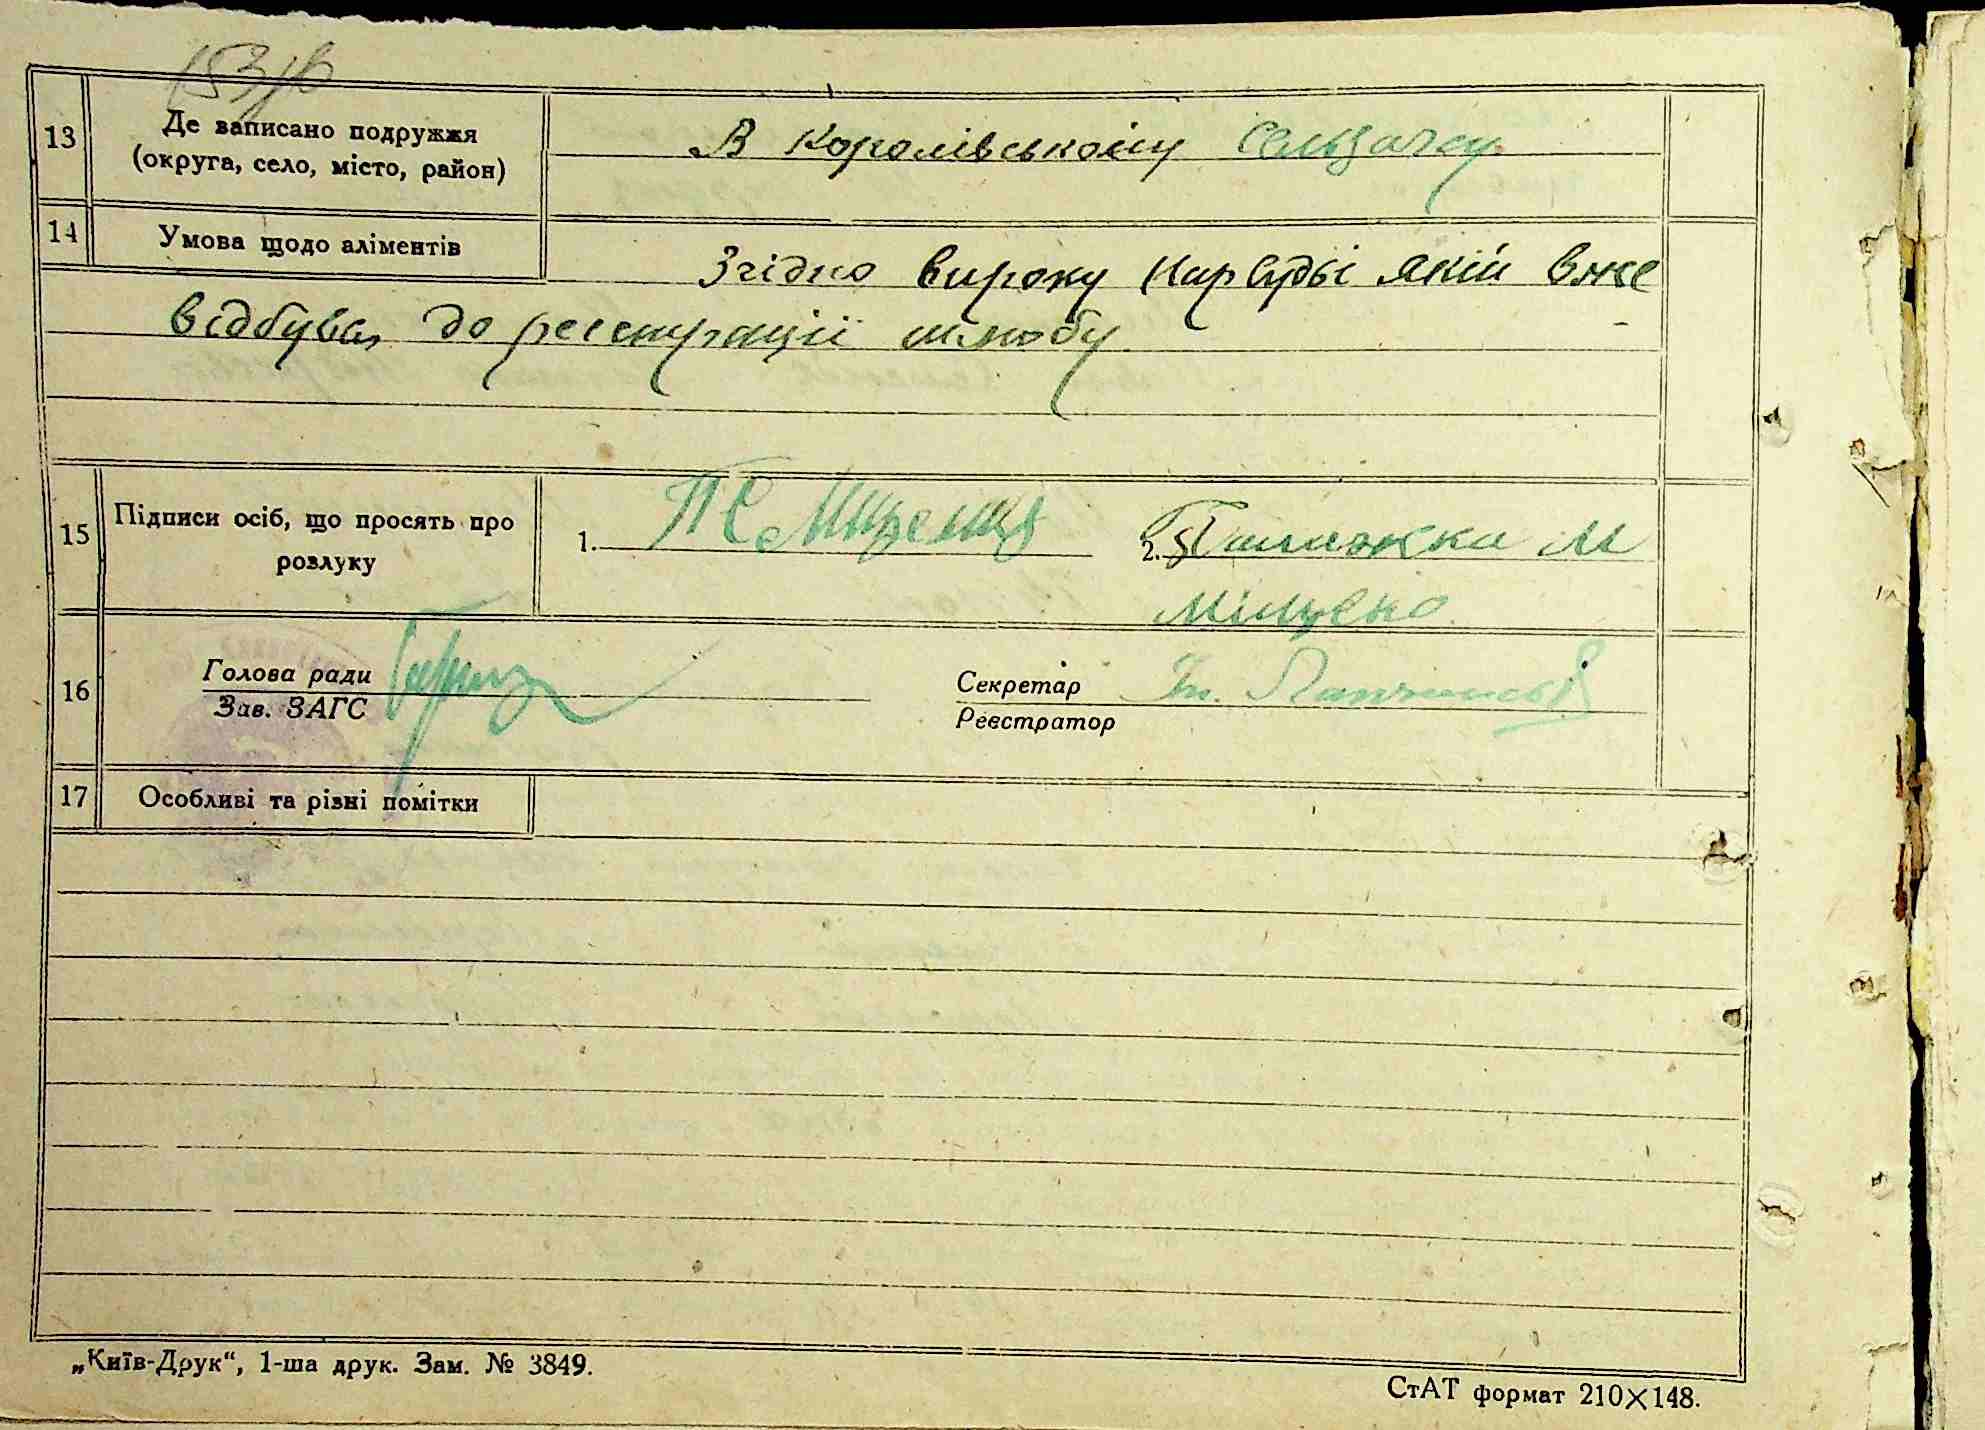 153/в
13
Де записано подружжя
(округа, село, місто, район)
В Королівському Сельзагсу
14
Умова щодо аліментів
Згідно вироку Нарсудьі якій вже
відбував до реєстрації шлюбу
15
Підписи осіб, що просять про
розлуку
1.
2.
Міщенко
16
Голова ради
Зав. ЗАГС
Секретар
Реєстратор
17
Особливі та різні помітки
„Київ-Друк“, 1-ша друк. Зам. № 3849.
СтАТ формат 210×148.